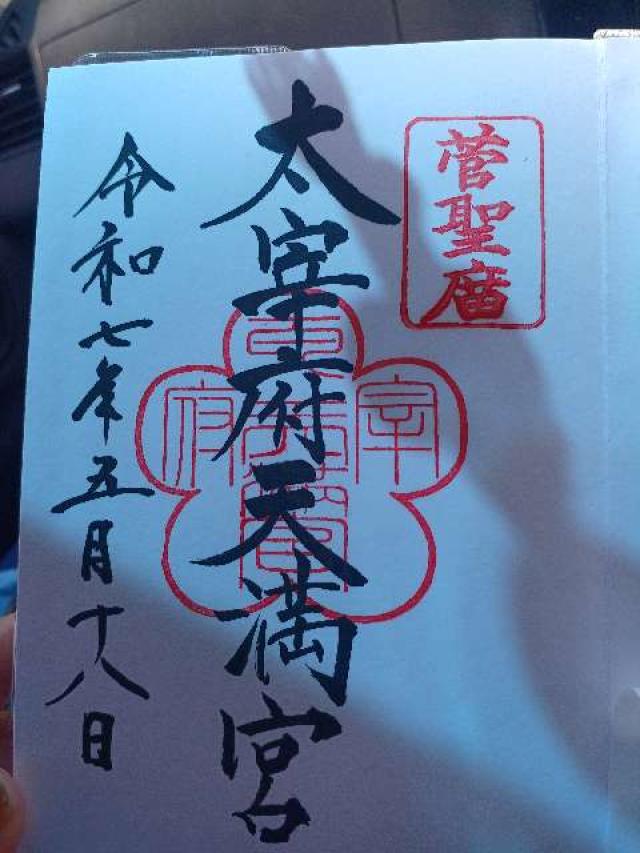 菅聖廟
太宰府天満宮
令和七年五月十八日